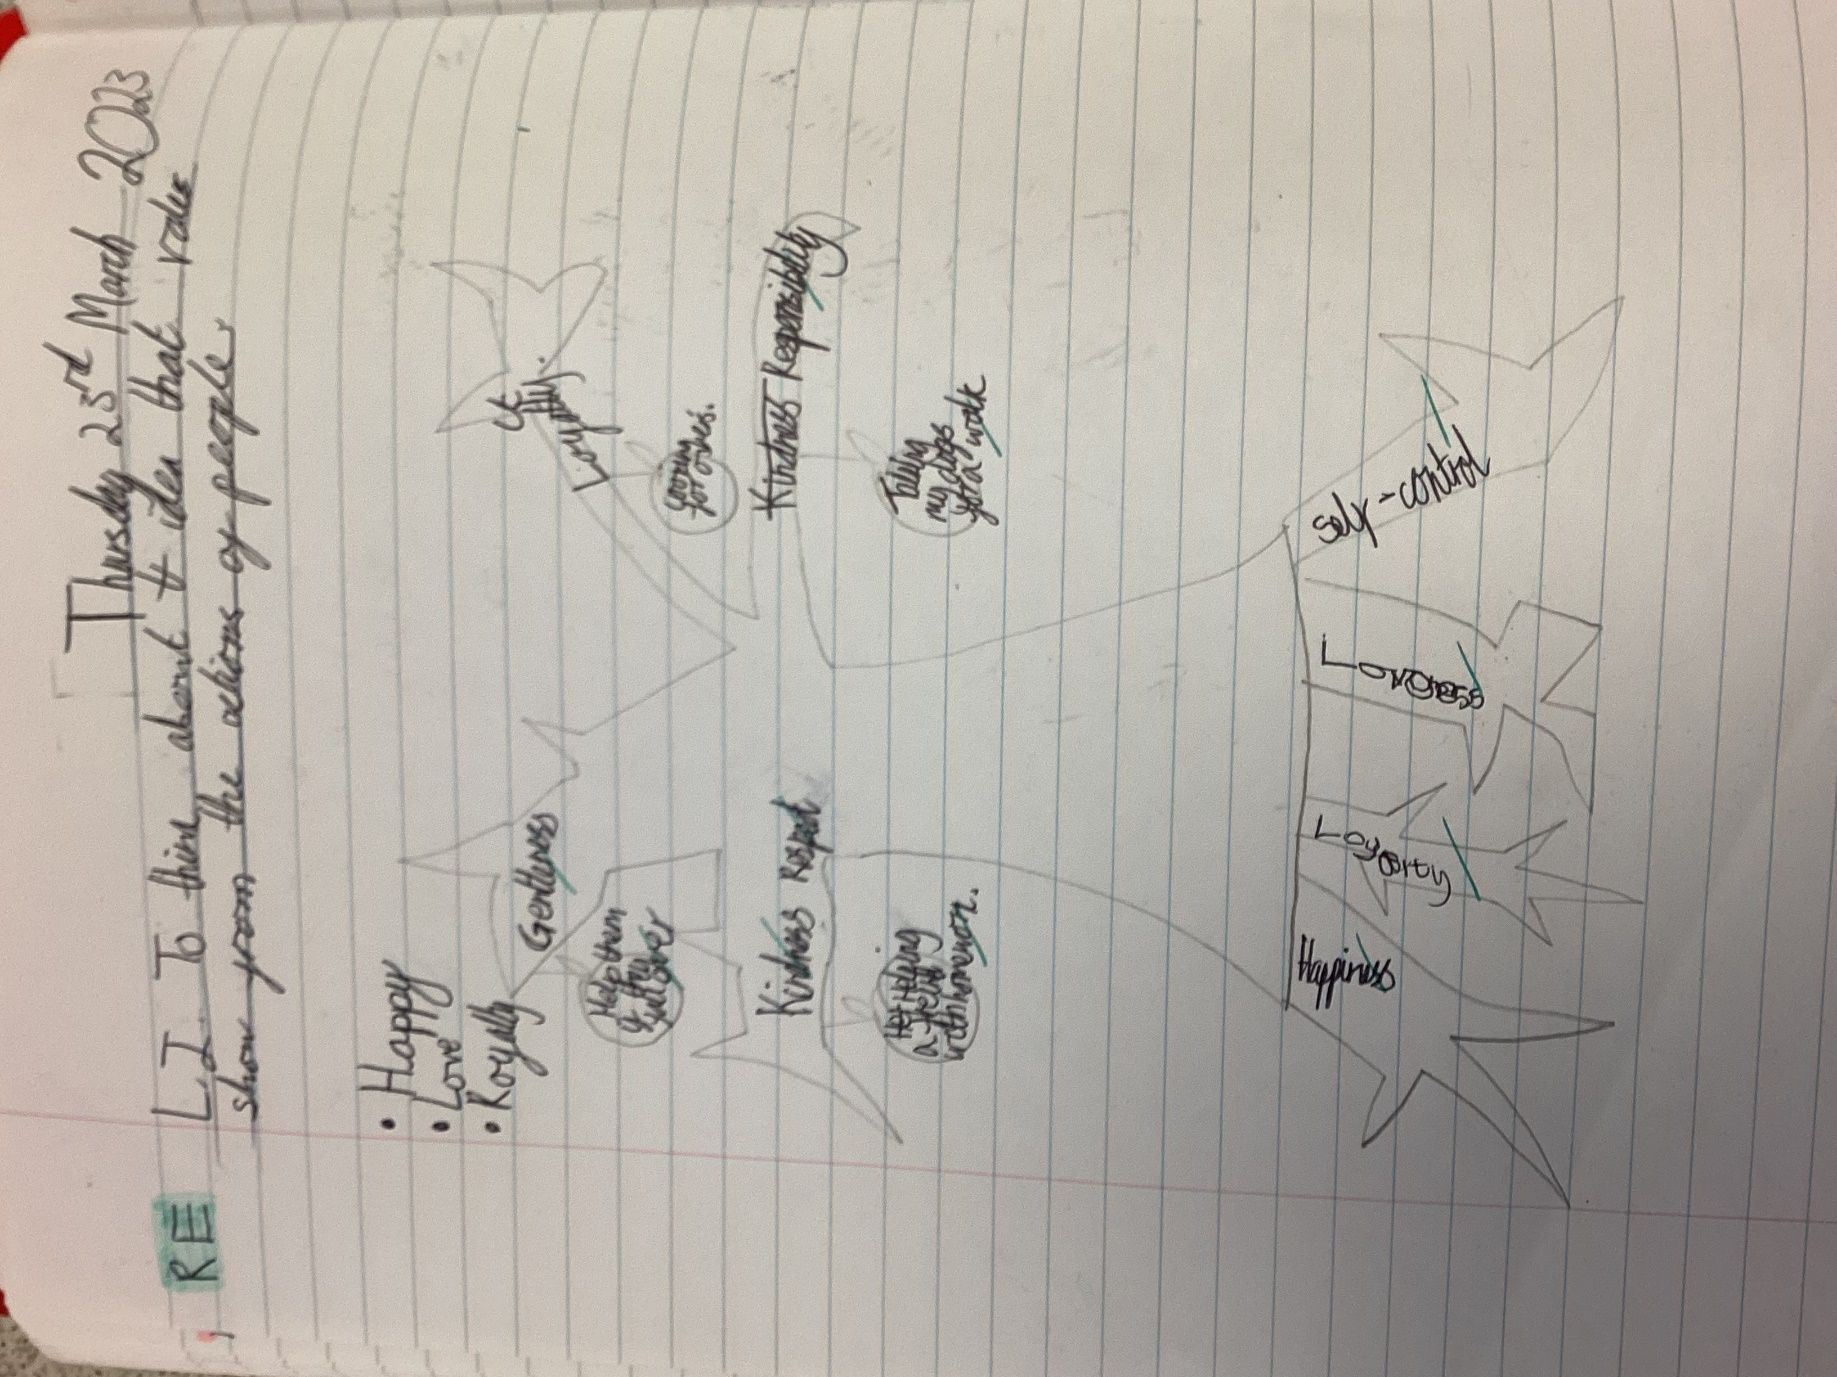 Thursday 23rd March 2023
RE
L.I. To think about t idea that vales
show from the actions of people.
• Happy
• Love
• Royalty
Gentleness
Help them
if they
fall over
Loyalty.
Caring
for others.
Kindness Respect
Helping
a friend
with homework.
Kindness Responsibility
Taking
my dogs
for a walk
Happiness
Loyalty
Loveness
self-control